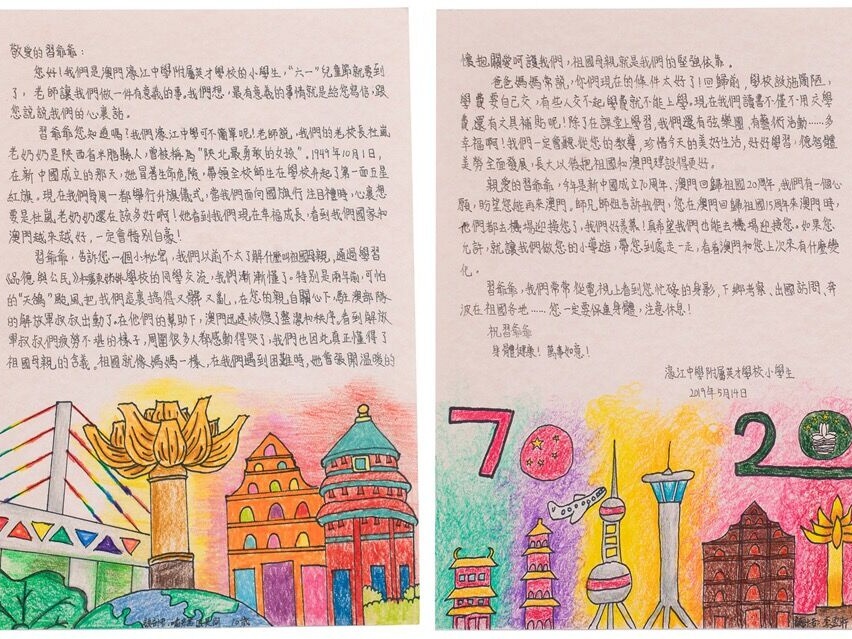 敬愛的習爺爺：
您好！我們是澳門濠江中學附屬英才學校的小學生，“六一”兒童節就要到
了，老師讓我們做一件有意義的事。我們想，最有意義的事情就是給您寫信，跟
您說說我們的心裏話。
習爺爺您知道嗎？我們濠江中學可不簡單呢！老師說，我們的老校長杜嵐
老奶奶是陝西省米脂縣人，曾被稱為“陝北最勇敢的女孩”。1949年10月1日，
在新中國成立的那天，她冒著生命危險，帶領全校師生在學校升起了第一面五星
紅旗。現在我們每周一都舉行升旗儀式，當我們面向國旗行注目禮時，心裏想
要是杜嵐老奶奶還在該多好啊！她看到我們現在幸福成長，看到我們國家和
澳門越來越好，一定會特別自豪！
習爺爺，告訴您一個小秘密，我們以前不太了解什麼叫祖國母親，通過學習
《品德與公民》和姊妹學校的同學交流，我們漸漸懂了。特別是兩年前，可怕
的“天鴿”颱風把我們這裏搞得又髒又亂，在您的親自關心下，駐澳部隊
的解放軍叔叔出動了。在他們的幫助下，澳門迅速恢復了整潔和秩序。看到解放
軍叔叔們疲勞不堪的樣子，周圍很多人都感動得哭了，我們也因此真正懂得了
祖國母親的含義。祖國就像媽媽一樣，在我們遇到困難時，她會張開溫暖的
懷抱關愛呵護我們，祖國母親就是我們的堅強依靠。
爸爸媽媽常說，你們現在的條件太好了！回歸前，學校設施簡陋，
學費要自己交，有些人交不起學費就不能上學。現在我們讀書不僅不用交學
費，還有文具補貼呢！除了在課堂上學習，我們還有弦樂團，有藝術活動……多
幸福啊！我們一定會聽從您的教導，珍惜今天的美好生活，好好學習，德智體
美勞全面發展，長大以後把祖國和澳門建設得更好。
親愛的習爺爺，今年是新中國成立70周年、澳門回歸祖國20周年，我們有一個心
願，盼望您能再來澳門。師兄師姐告訴我們，您在澳門回歸祖國15周年來澳門時，
他們都去機場迎接您了，我們好羨慕！真希望我們也能去機場迎接您。如果您
允許，就讓我們做您的小導遊，帶您到處走一走，看看澳門和您上次來有什麼變
化。
習爺爺，我們常常從電視上看到您忙碌的身影，下鄉考察、出國訪問、奔
波在祖國各地……您一定要保重身體，注意休息！
祝習爺爺
身體健康！萬事如意！
濠江中學附屬英才學校小學生
2019年5月14日
70
20